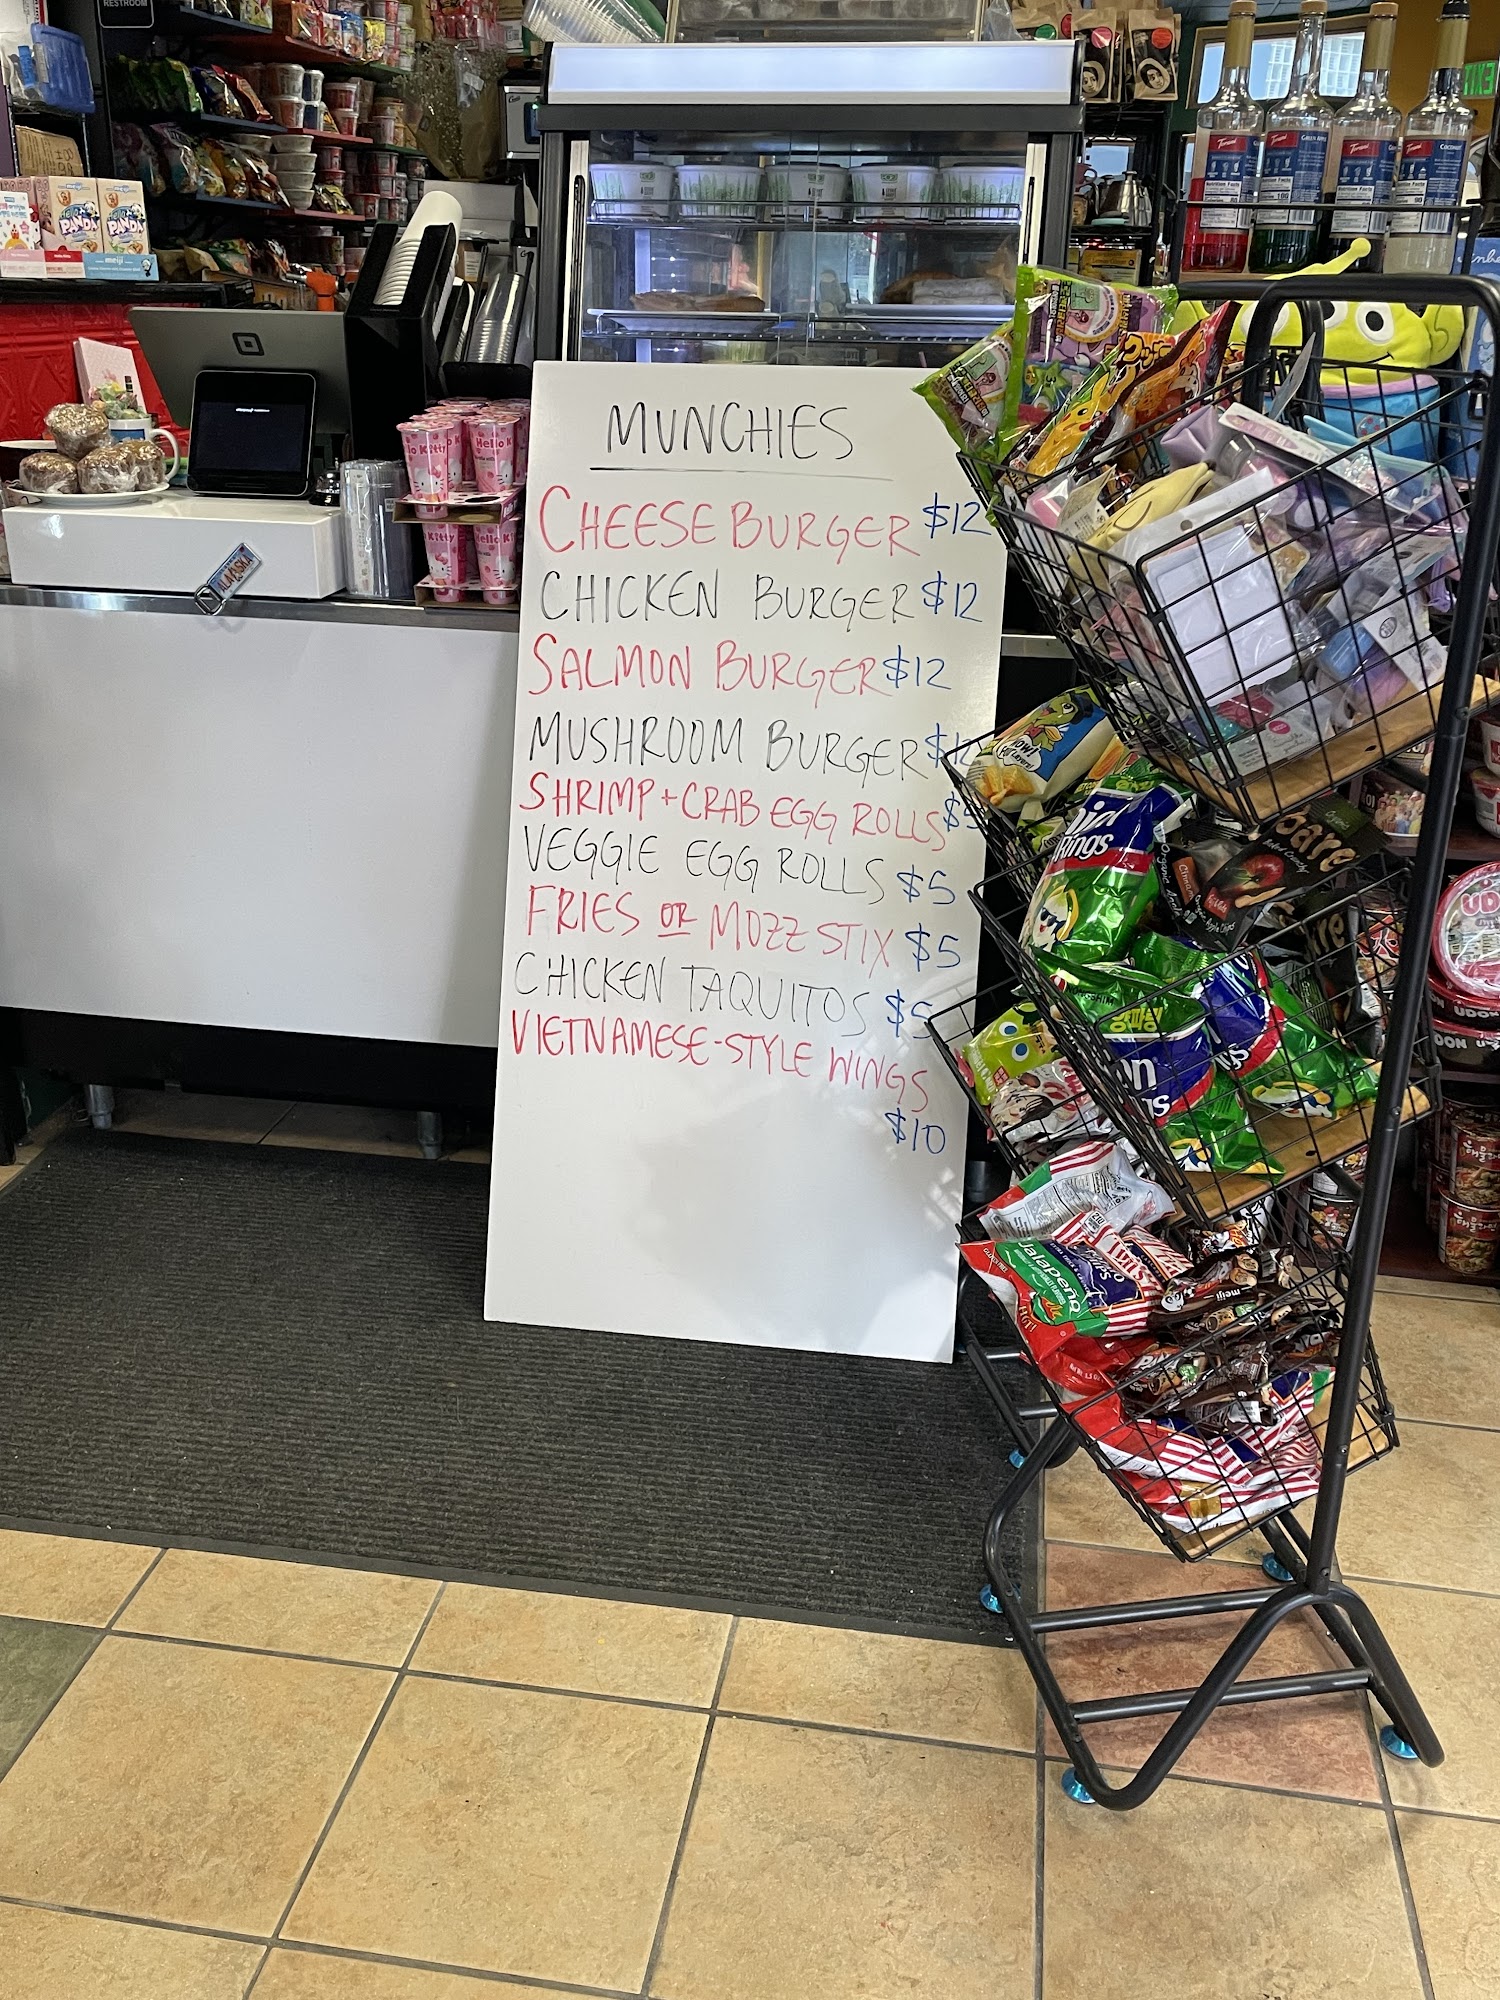 RESTROOM
meiji
Hello PANDA
meiji
ALASKA
Hello Kitty
Hello Kitty
Torani
GREEN APPLE
Torani
Torani
COCONUT
Nutrition Facts
EXIT
MUNCHIES
CHEESE BURGER $12
CHICKEN BURGER $12
SALMON BURGER $12
MUSHROOM BURGER $12
SHRIMP + CRAB EGG ROLLS $5
VEGGIE EGG ROLLS $5
FRIES OR MOZZ STIX $5
CHICKEN TAQUITOS $5
VIETNAMESE-STYLE WINGS
$10
Rings
bare
NONGSHIM
양파링
Jalapeño
HOT!
meiji
UDON
UDON